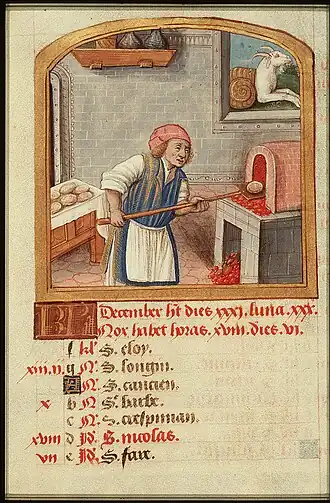 KL December ht dies xxxi. luna. xxx.
Nox habet horas. xviii. dies. vi.
f kl' S. eloy.
xiii. N. g N. S. longin.
A N. S. cancien.
x b N. Se barbe.
c N. S. crespinian.
xviii d Id. S. nicolas.
vii e Id. S. fare.